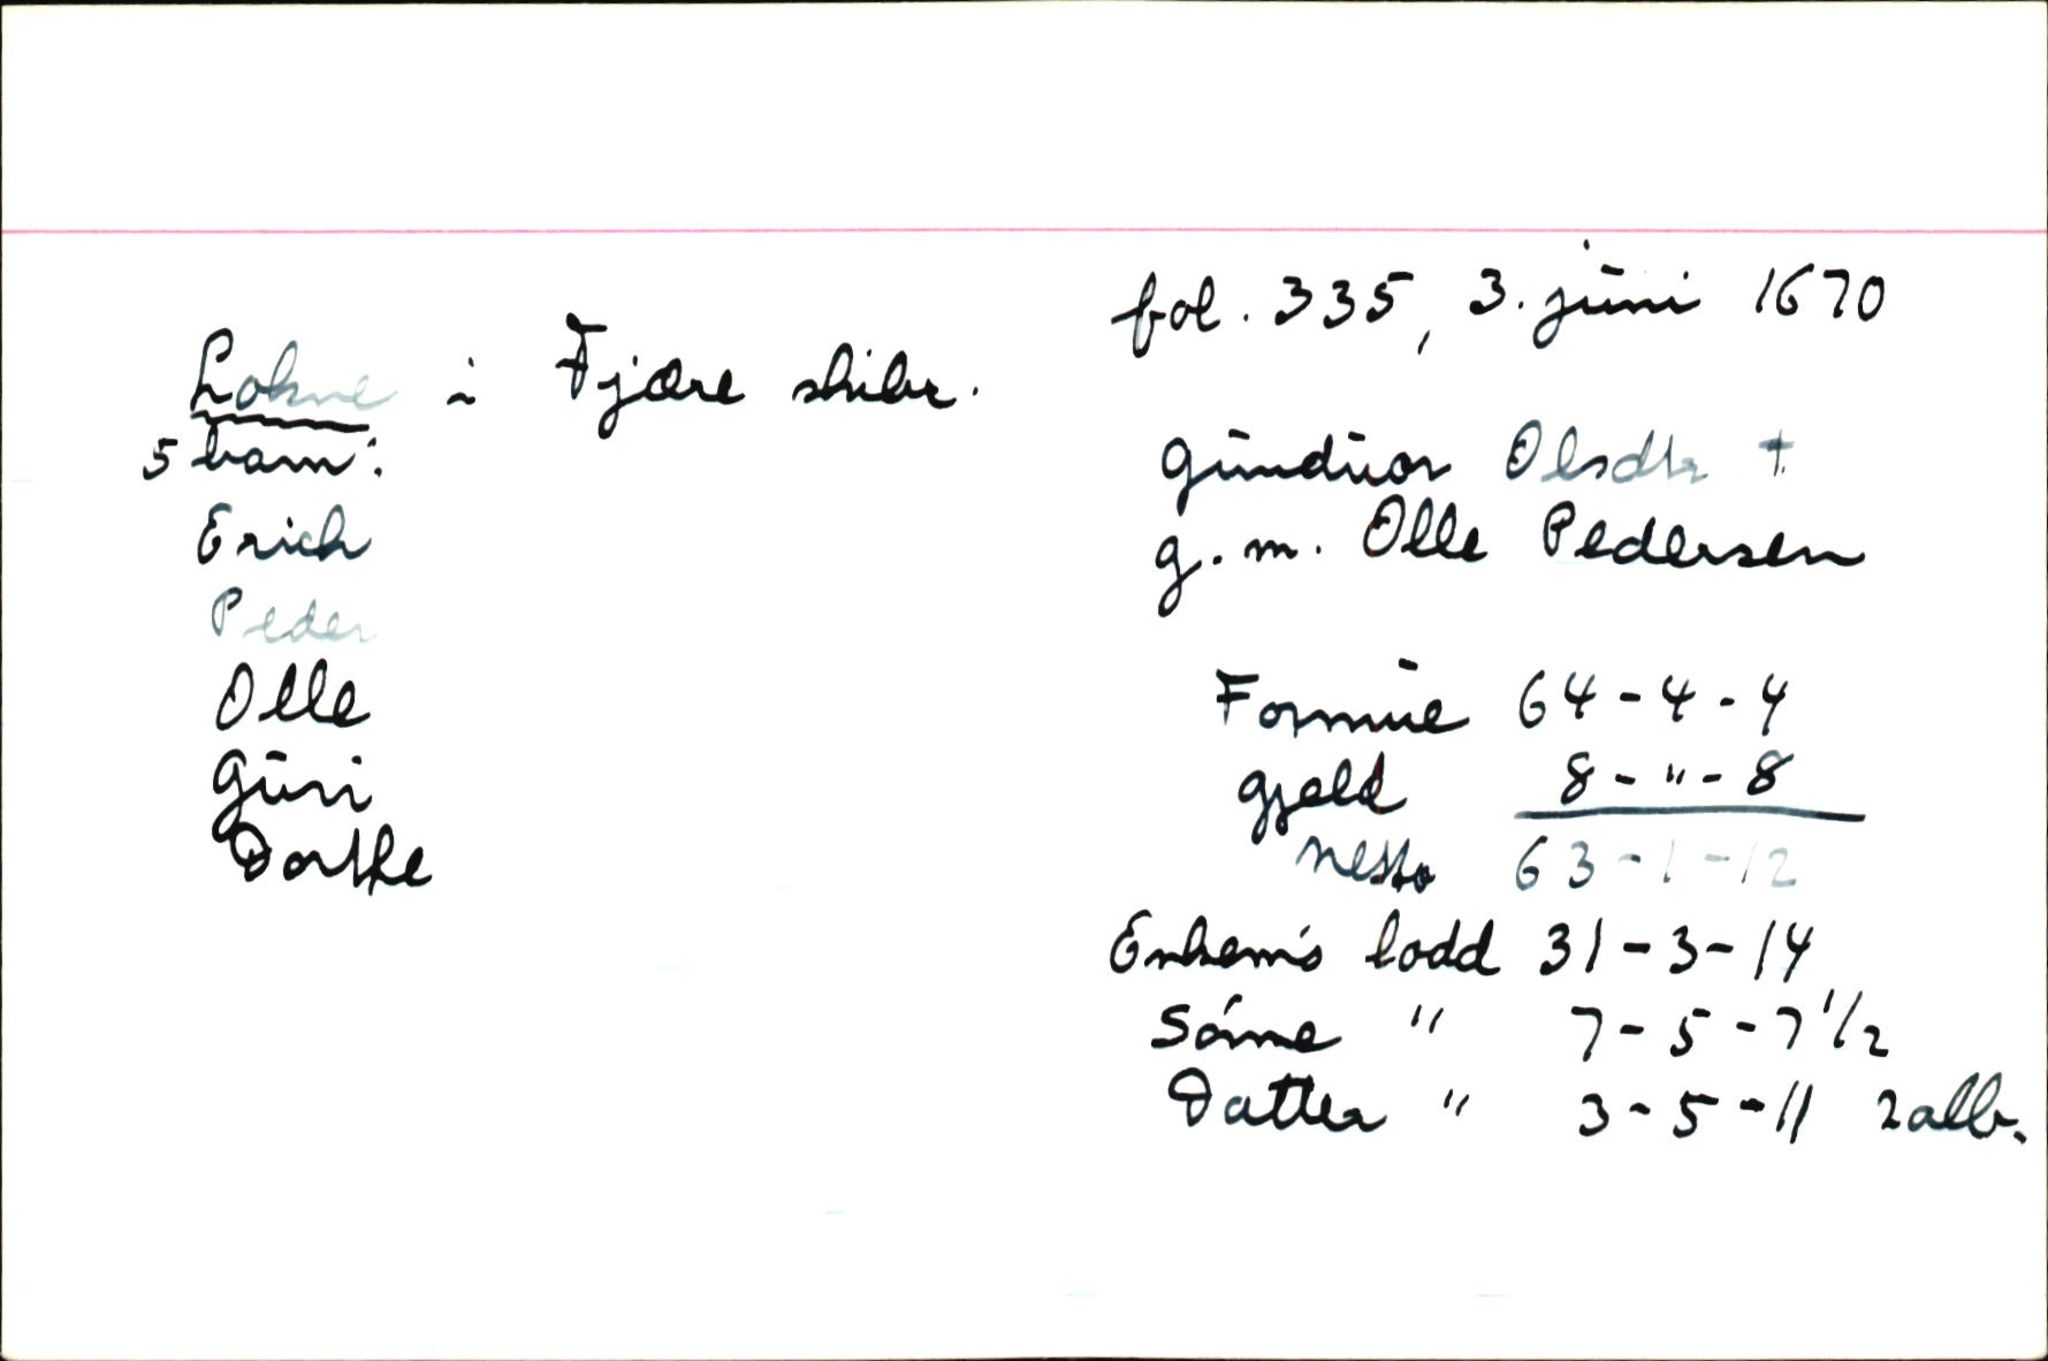 fol. 335, 3. juni 1670
Lokne i Fjære skibr.
5 barn:
Erich
Peder
Olle
Guri
Dorthe
Gunduor Olsdtr †
g. m. Olle Pedersen
Formue 64-4-4
Gjeld 8-"-8
Netto 63-1-12
Enkem's lodd 31-3-14
Sønne " 7-5-7 1/2
Datter " 3-5-11 2 alb.